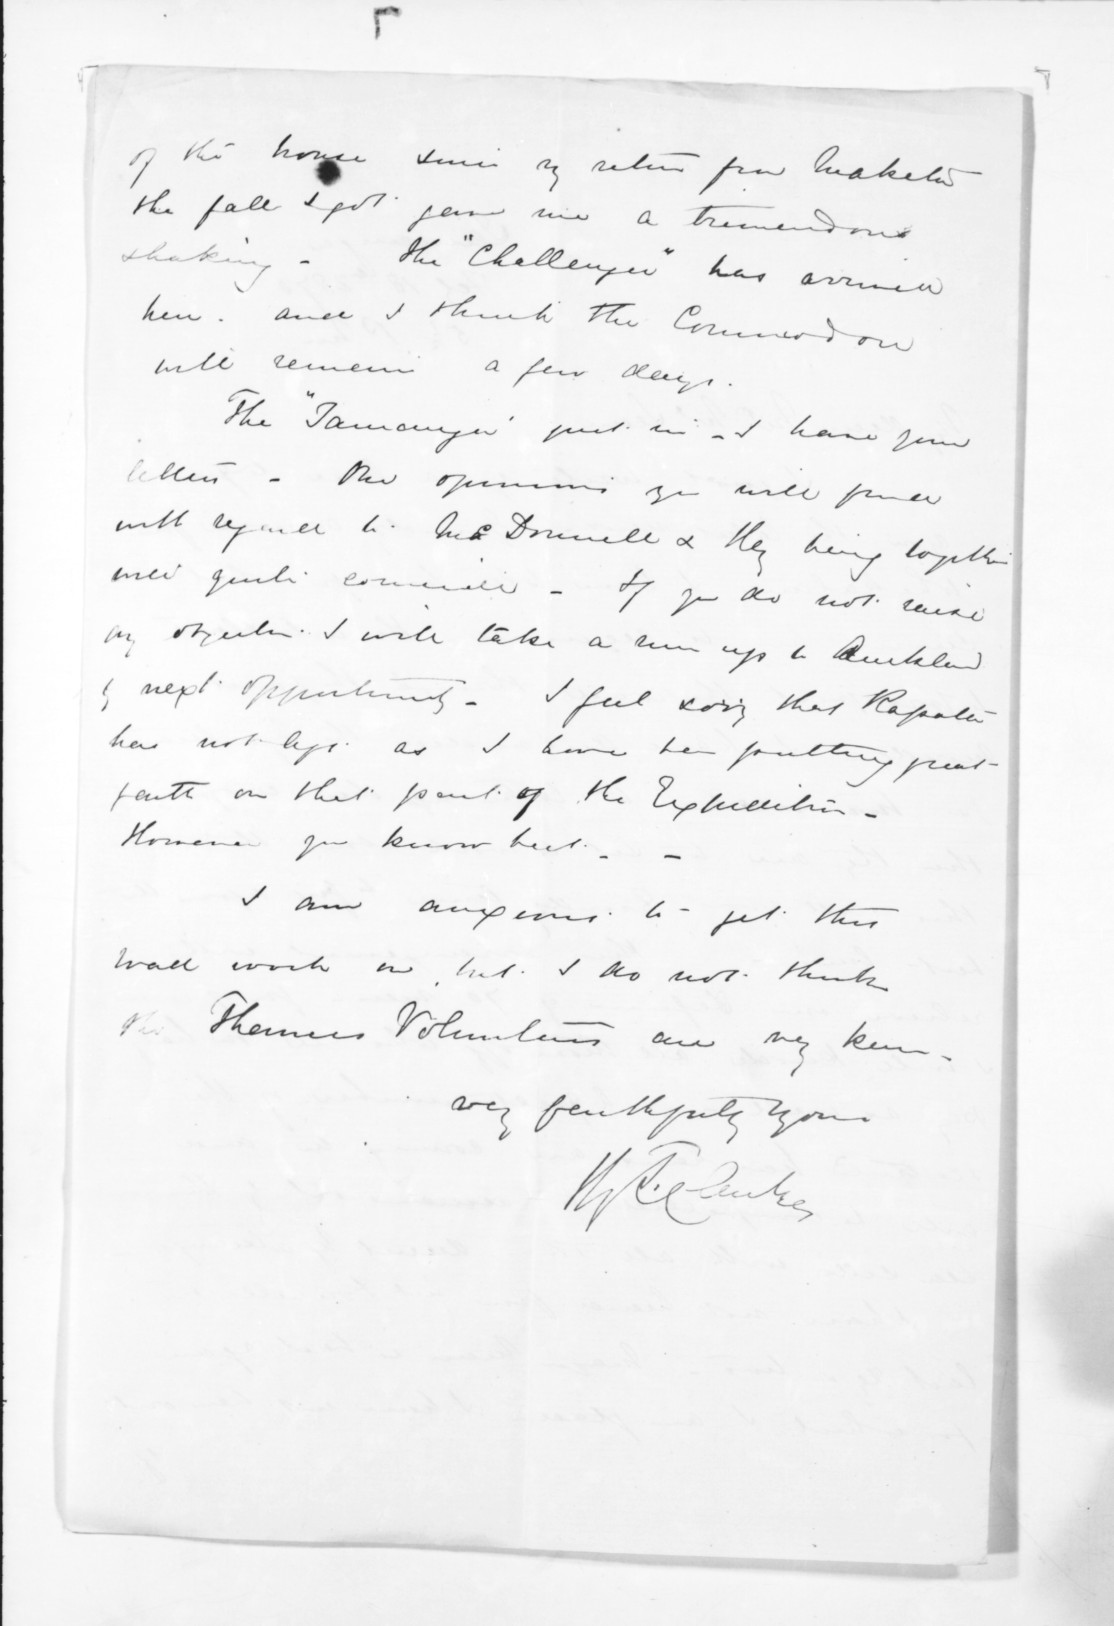 of the house since my return from Maketu
the fall I got gave me a tremendous
shaking - The "Challenger" has arrived
here. and I think the Commodore
will remain a few days.
The "Tauranga" just in - I have your
letters - The opinions you will find
with regard to McDonnell & they being together
will quite coincide - If you do not raise
any objection I will take a run up to Auckland
by next opportunity - I feel sorry that Ropata
has not left as I have been putting great
faith on that part of the Expedition -
However you know best - -
I am anxious to get this
road work on, but I do not think
the Thames Volunteers are very keen -
very faithfully yours
Hy T. Clarke